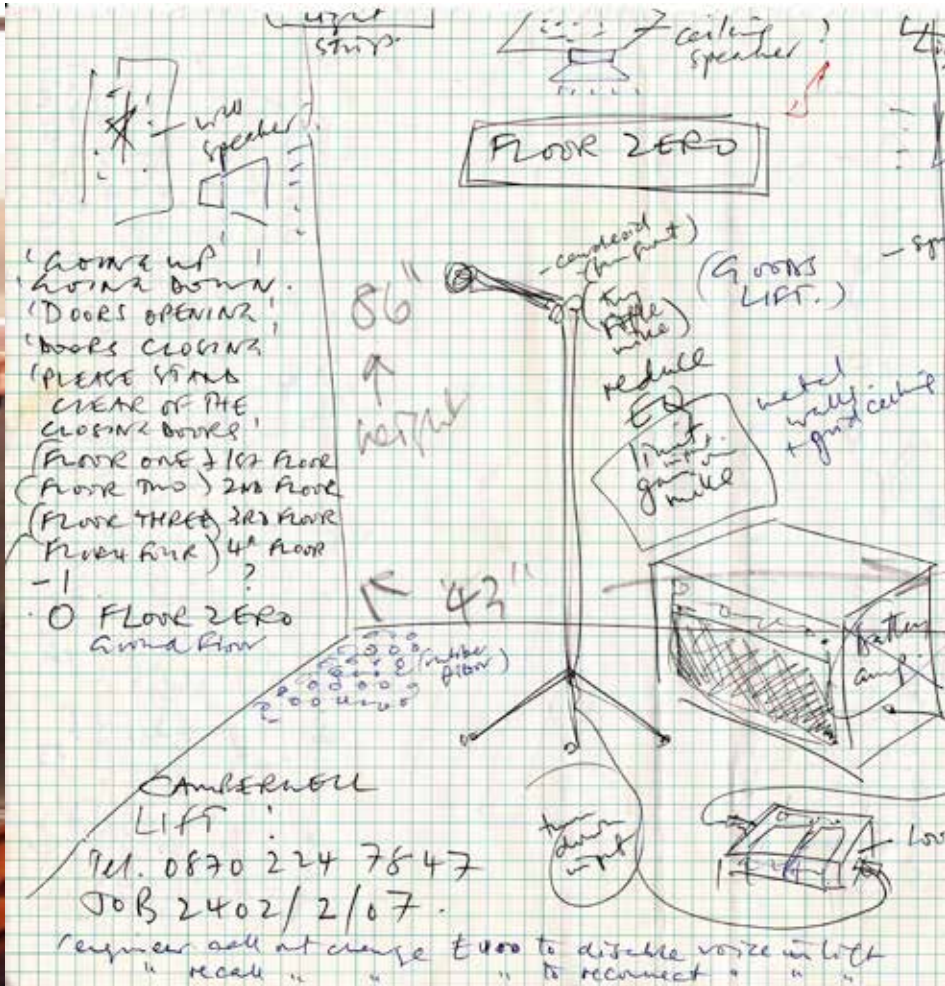 light
strip.
ceiling
speaker ?
wall
speaker
FLOOR ZERO
'GOING UP'
'GOING DOWN.
'DOORS OPENING'
'DOORS CLOSING'
'PLEASE STAND
CLEAR OF THE
CLOSING DOORS'
(FLOOR ONE) 1ST FLOOR
(FLOOR TWO) 2ND FLOOR
(FLOOR THREE) 3RD FLOOR
FLOOR FOUR) 4th FLOOR
-1 ?
0 FLOOR ZERO
Ground Floor
86"
height
43"
(rubber
floor)
(GOODS
LIFT.)
rifle
mike)
reduce
EQ
limit
input
gain on
mike
metal
walls
+ grid ceiling
battery
amp.
turn
down
input
CAMBERWELL
LIFT :
Tel. 0870 224 7847
JOB 2402/2/07.
engineer call out charge £400 to disable voice in lift
" recall " " " to reconnect " " "